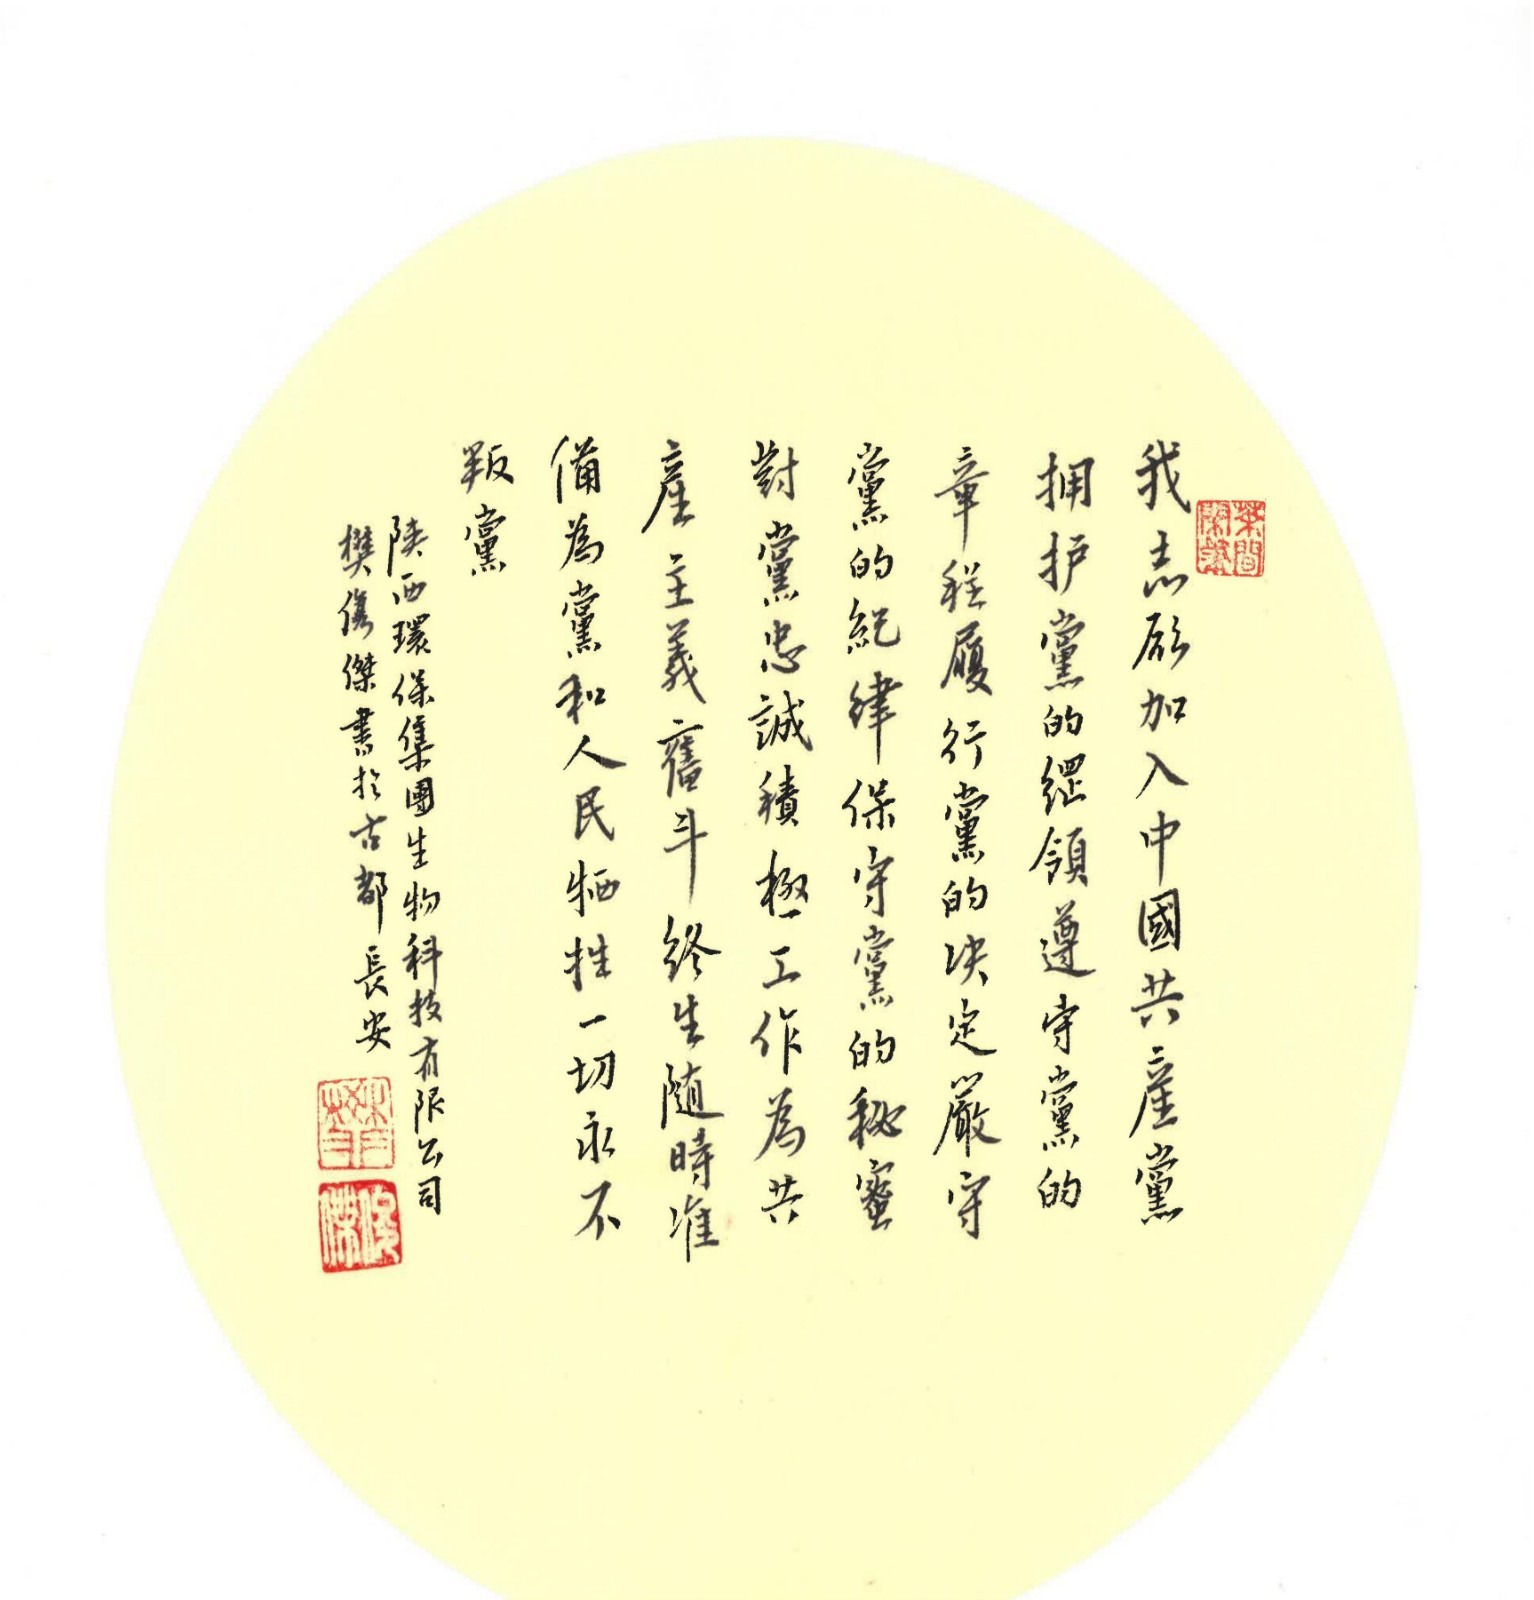 我志愿加入中國共產黨
拥护黨的綱領遵守黨的
章程履行黨的决定嚴守
黨的紀律保守黨的秘蜜
對黨忠誠積極工作為共
產主義奮斗終生随時准
備為黨和人民牺牲一切永不
叛黨
陝西環保集團生物科技有限公司
樊儁傑書於古都長安